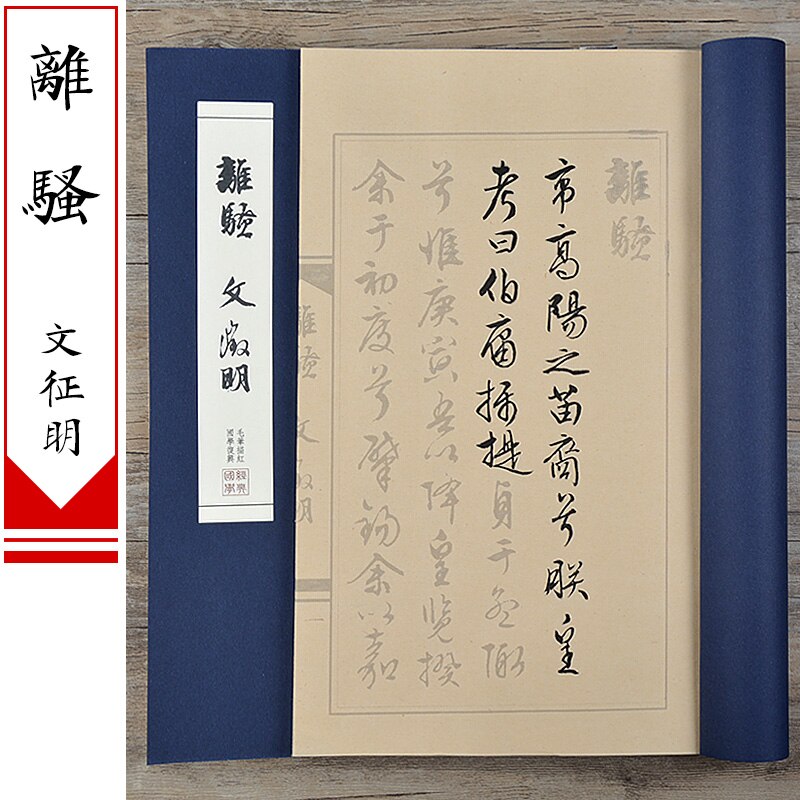 離騷
文征明
離騷 文徵明
毛筆描紅
國學復興
經典
國學
離騷
帝高陽之苗裔兮朕皇
考曰伯庸攝提貞于孟陬
兮惟庚寅吾以降皇覽揆
余于初度兮肇錫余以嘉
離騷 文徵明